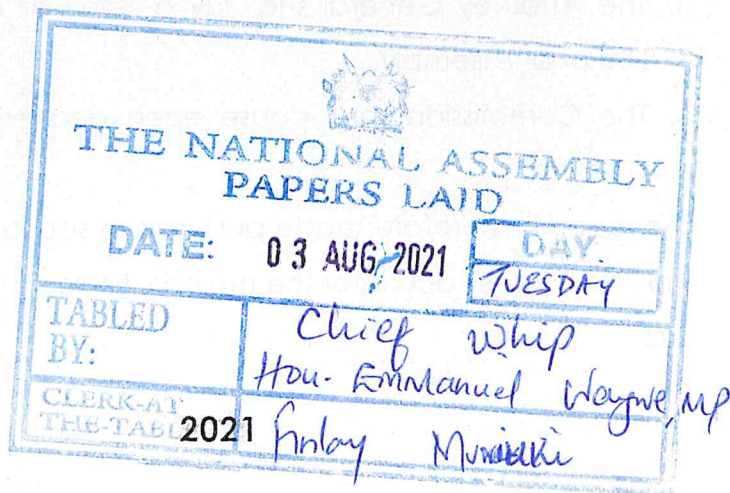 THE NATIONAL ASSEMBLY
PAPERS LAID
DATE: 03 AUG 2021 DAY.
TUESDAY
TABLED BY: Chief Whip
Hon. Emmanuel Wangwe, MP
CLERK-AT THE-TABLE 2021